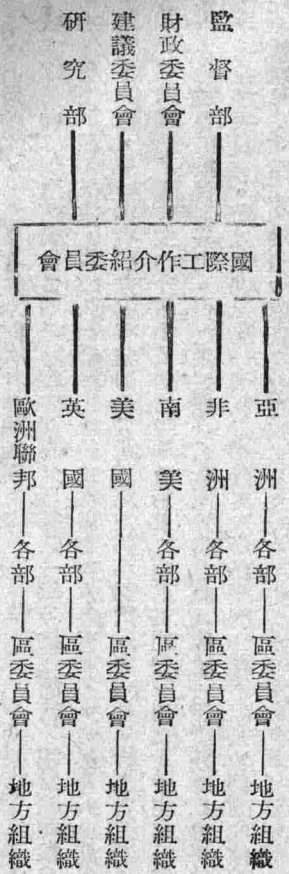 監督部
財政委員會
建議委員會
研究部
國際工作介紹委員會
亞洲—各部—區委員會—地方組織
非洲—各部—區委員會—地方組織
南美—各部—區委員會—地方組織
美國—區委員會—地方組織
英國—各部—區委員會—地方組織
歐洲聯邦—各部—區委員會—地方組織